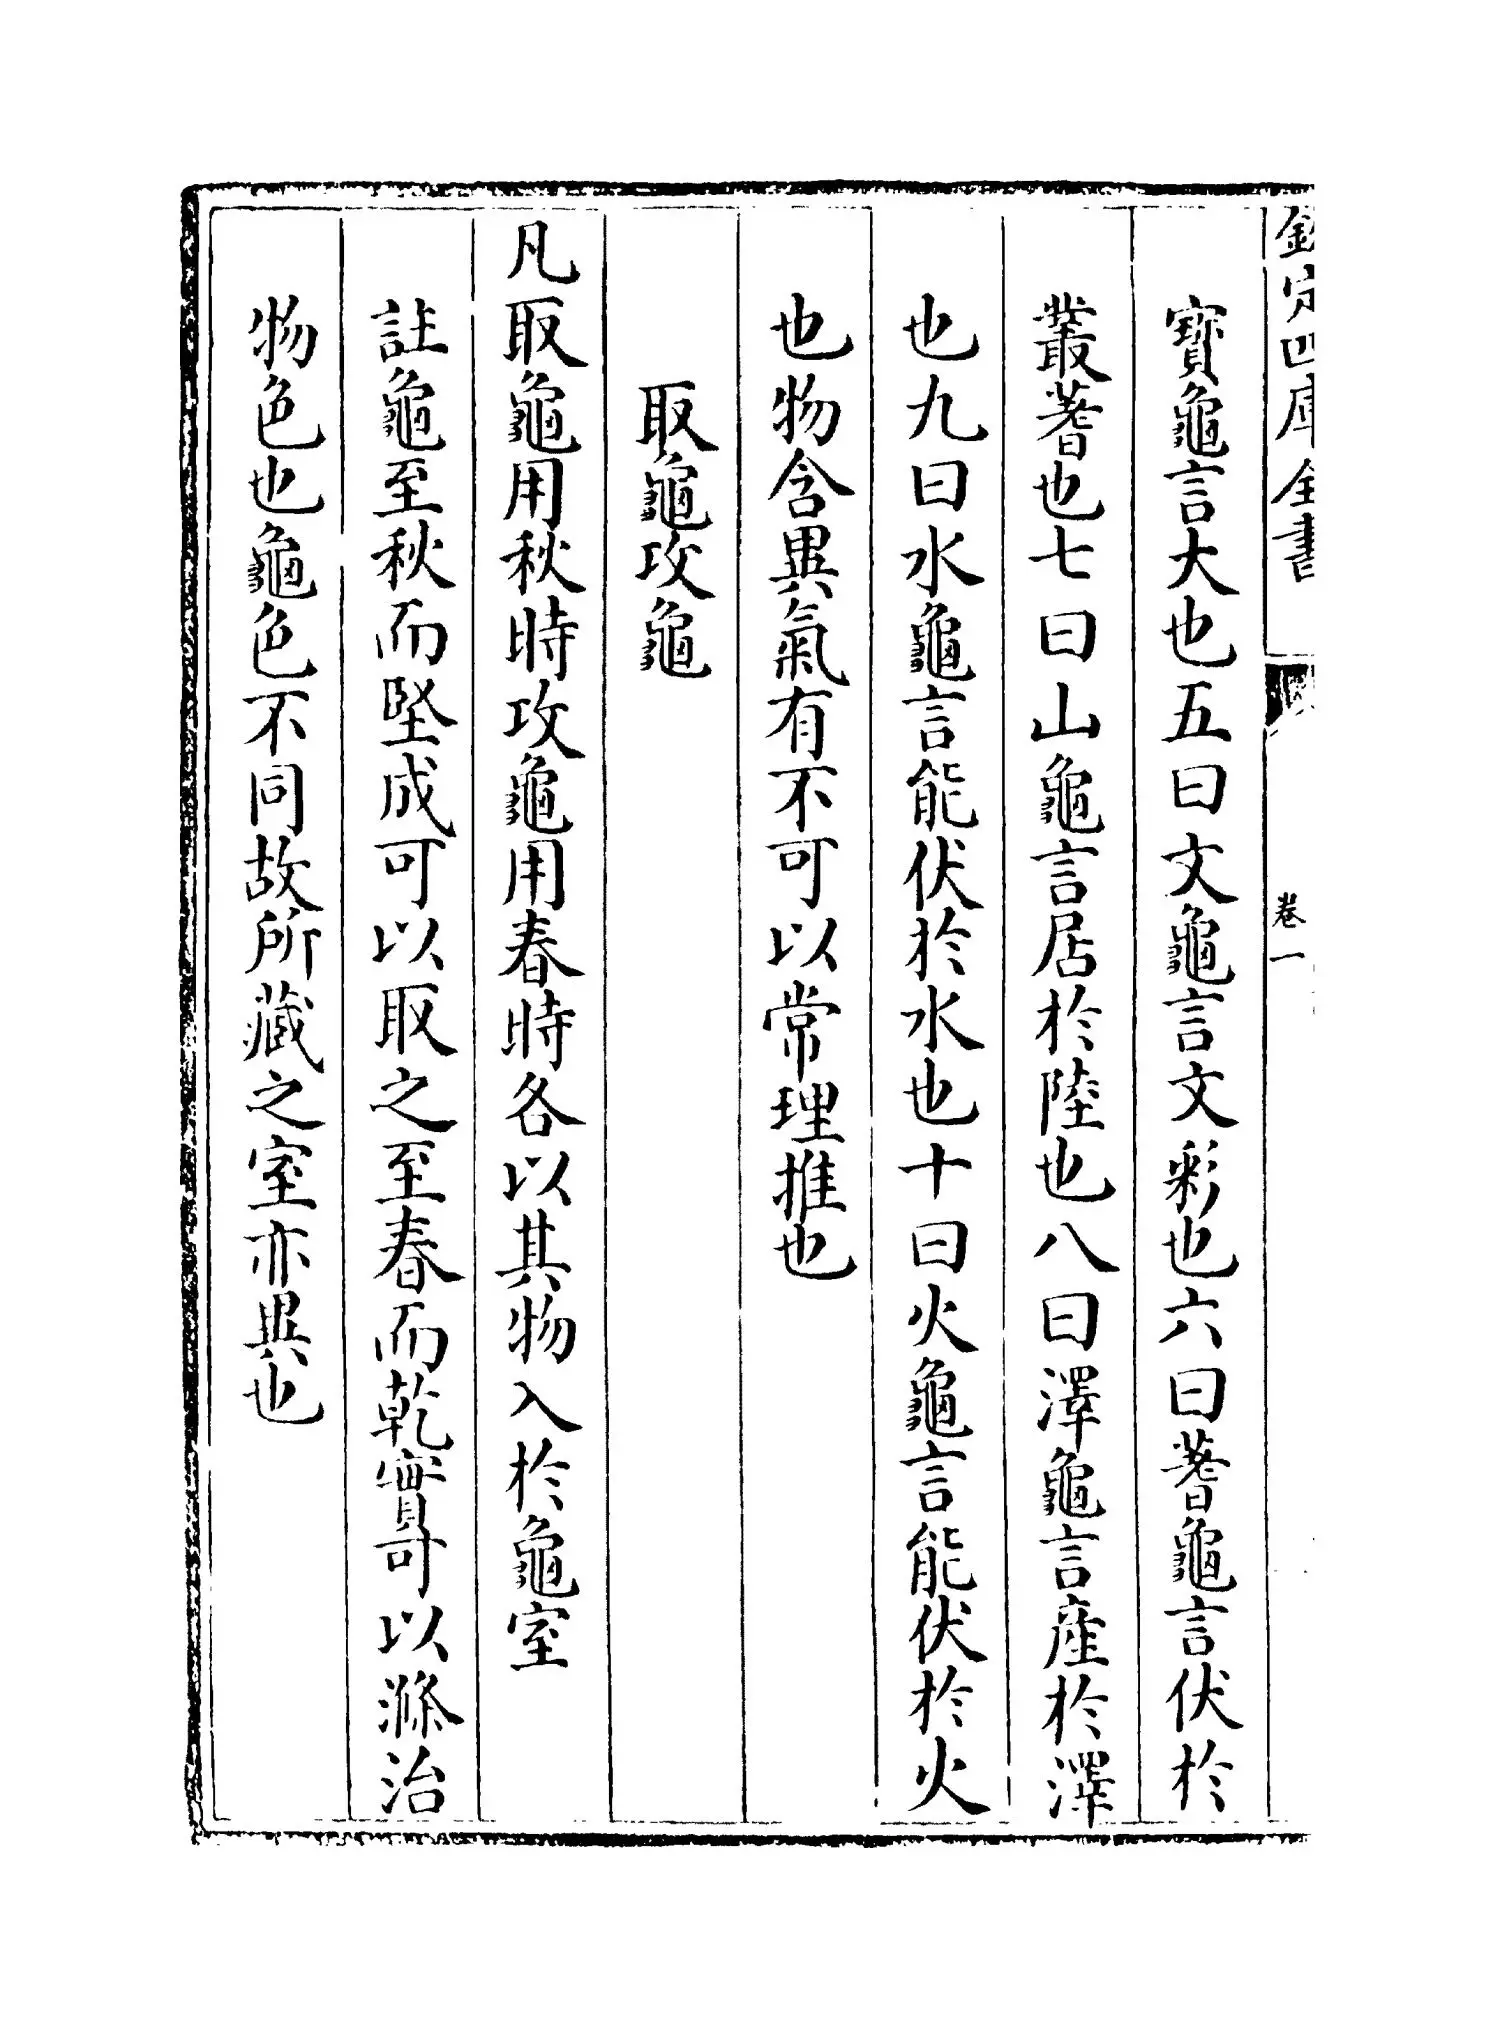 欽定四庫全書
卷一
寳龜言大也五曰文龜言文彩也六曰蓍龜言伏於
叢蓍也七曰山龜言居於陸也八曰澤龜言産於澤
也九曰水龜言能伏於水也十曰火龜言能伏於火
也物含異氣有不可以常理推也
取龜攻龜
凡取龜用秋時攻龜用春時各以其物入於龜室
註龜至秋而堅成可以取之至春而乾實可以滌治
物色也龜色不同故所藏之室亦異也